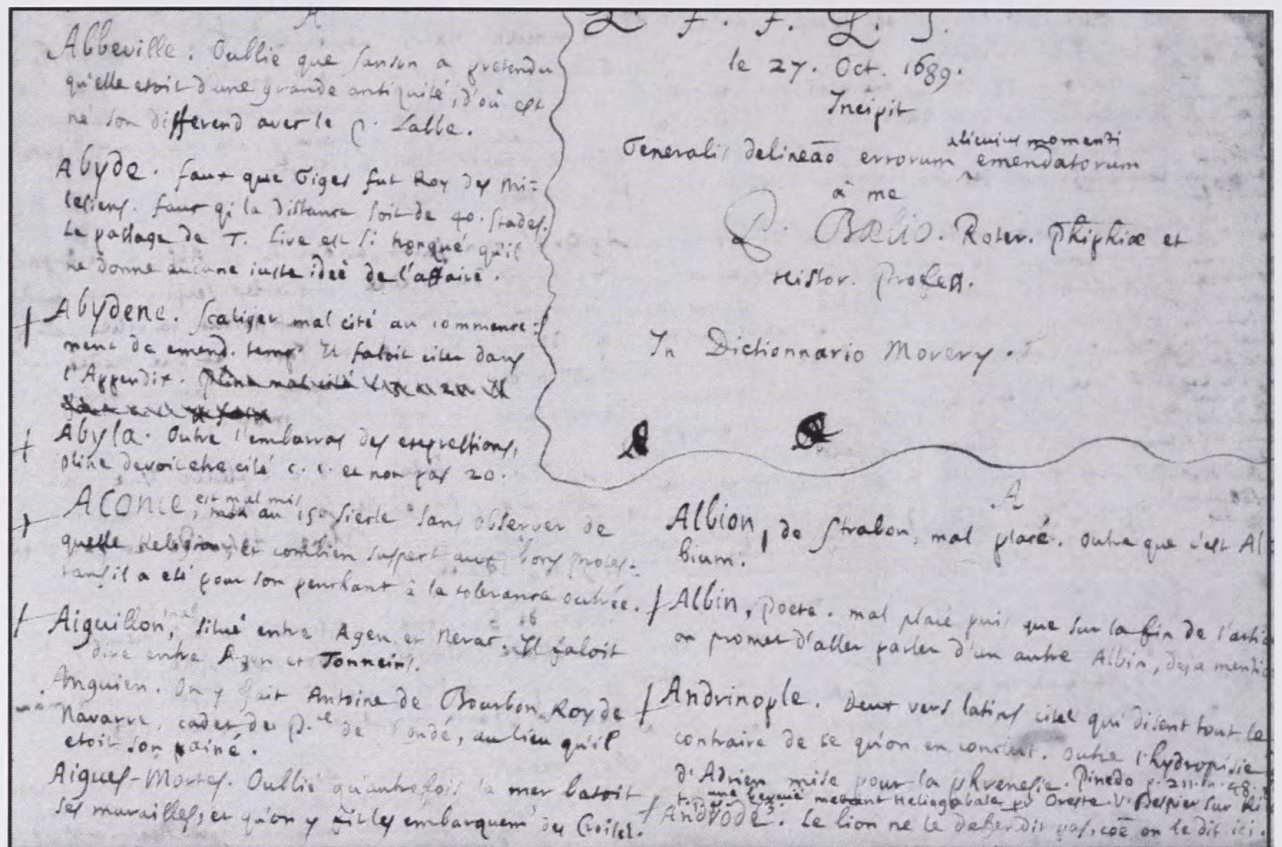 A
Abbeville. Oublié que Sanson a pretendu
qu'elle etoit d'une grande antiquité, d'où est
né son differend avec le P. Labbe.
Abyde. faux que Giges fut Roy des Mi-
lesiens. faux q; la distance soit de 40. stades.
Le passage de T. Live est si tronqué qu'il
ne donne aucune iuste ideé de l'affaire.
Abydene. Scaliger mal cité au commence-
ment de emend. temp. Il faloit citer dans
l'Appendix. Pline mal cité
Abyla. Outre l'embarras des expressions,
pline devoit etre cité c. 1. et non pas 20.
Aconce, est mal mis au 15e siecle sans observer de
quelle Religion, et combien suspect aux bons protes-
tans il a eté pour son penchant à la tolerance outrée.
Aiguillon, situé entre Agen et Nerac, Il faloit
dire entre Agen et Tonneins.
Anguien. On y fait Antoine de Bourbon Roy de
Navarre, cadet du P. de Condé, au lieu qu'il
etoit son ainé.
Aigues-Mortes. Oublié qu'autrefois la mer batoit
ses murailles, et qu'on y fit les embarquem. des Croisez.
L. F. F. Q. S.
le 27. Oct. 1689.
Incipit
Generalis delineão errorum alicuius momenti emendatorum
â me
P. Bælio. Roter. Phiphiæ et
Histor. Profess.
In Dictionnario Morery.
A
Albion, de Strabon, mal placé. outre que c'est Al
bium.
Albin, poete. mal placé puis que sur la fin de l'artic
on promet d'aller parler d'un autre Albin, deja mentio
Andrinople. Deux vers latins citez qui disent tout le
contraire de ce qu'on en conclut. outre l'hydropisie
d'Adrien mise pour la phrenesie. Pinedo p. 211.
mettant Heliogabale pr Oreste. V. Bespier sur Ri
Androde. Le lion ne le defendit pas, cõe on le dit ici.